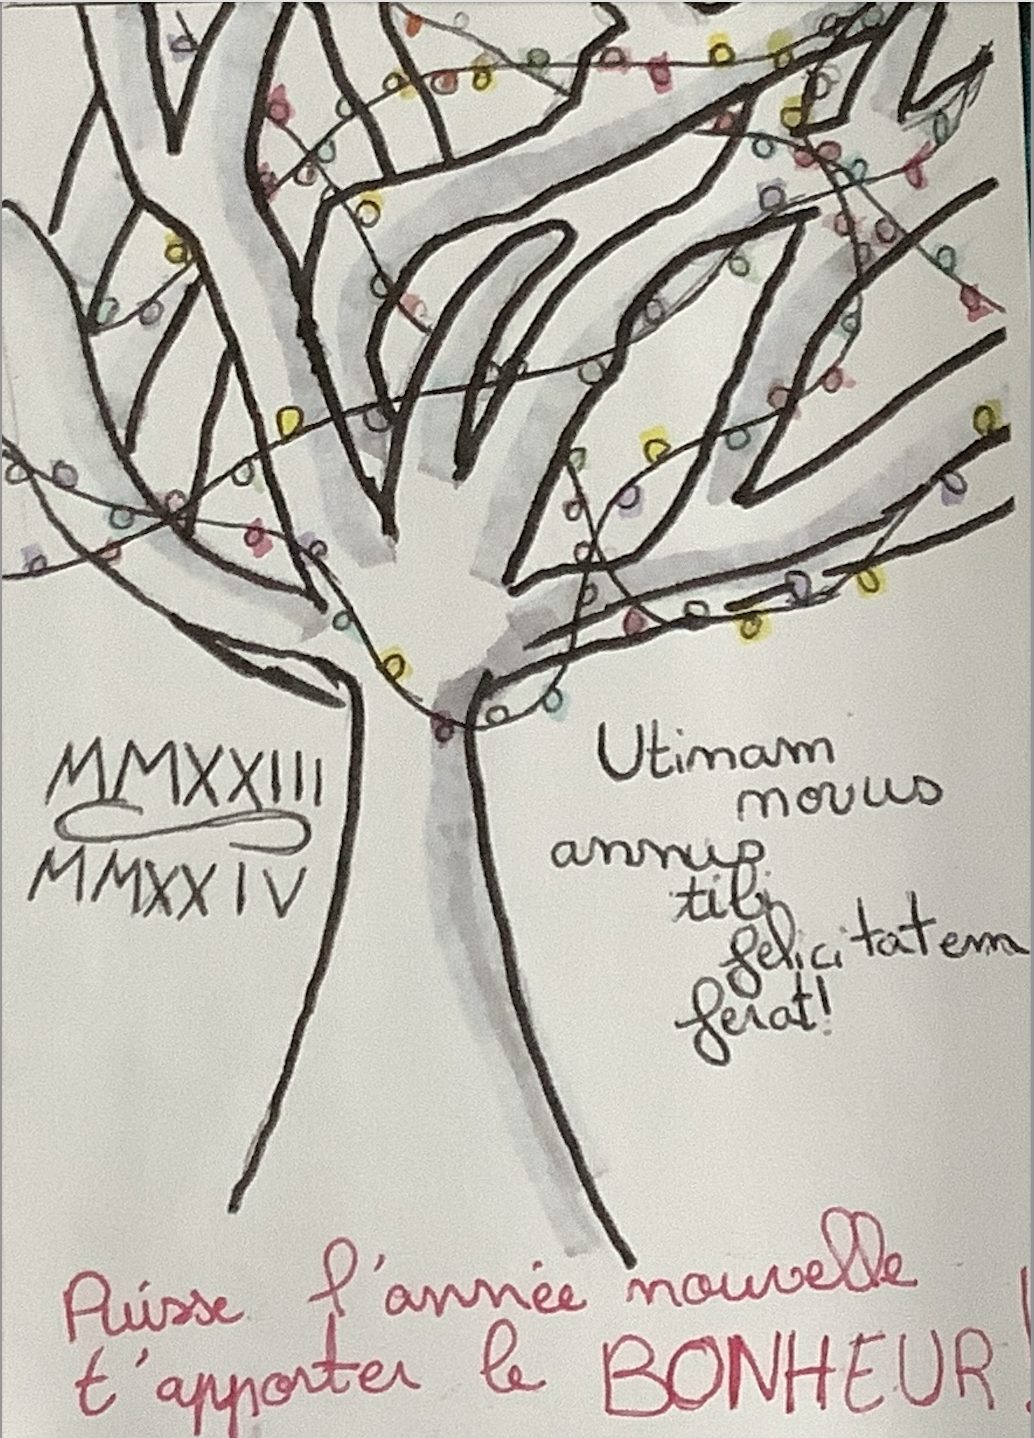 MMXXIII
MMXXIV
Utinam
novus
annus
tibi
felicitatem
ferat!
Puisse l'année nouvelle
t'apporter le BONHEUR!